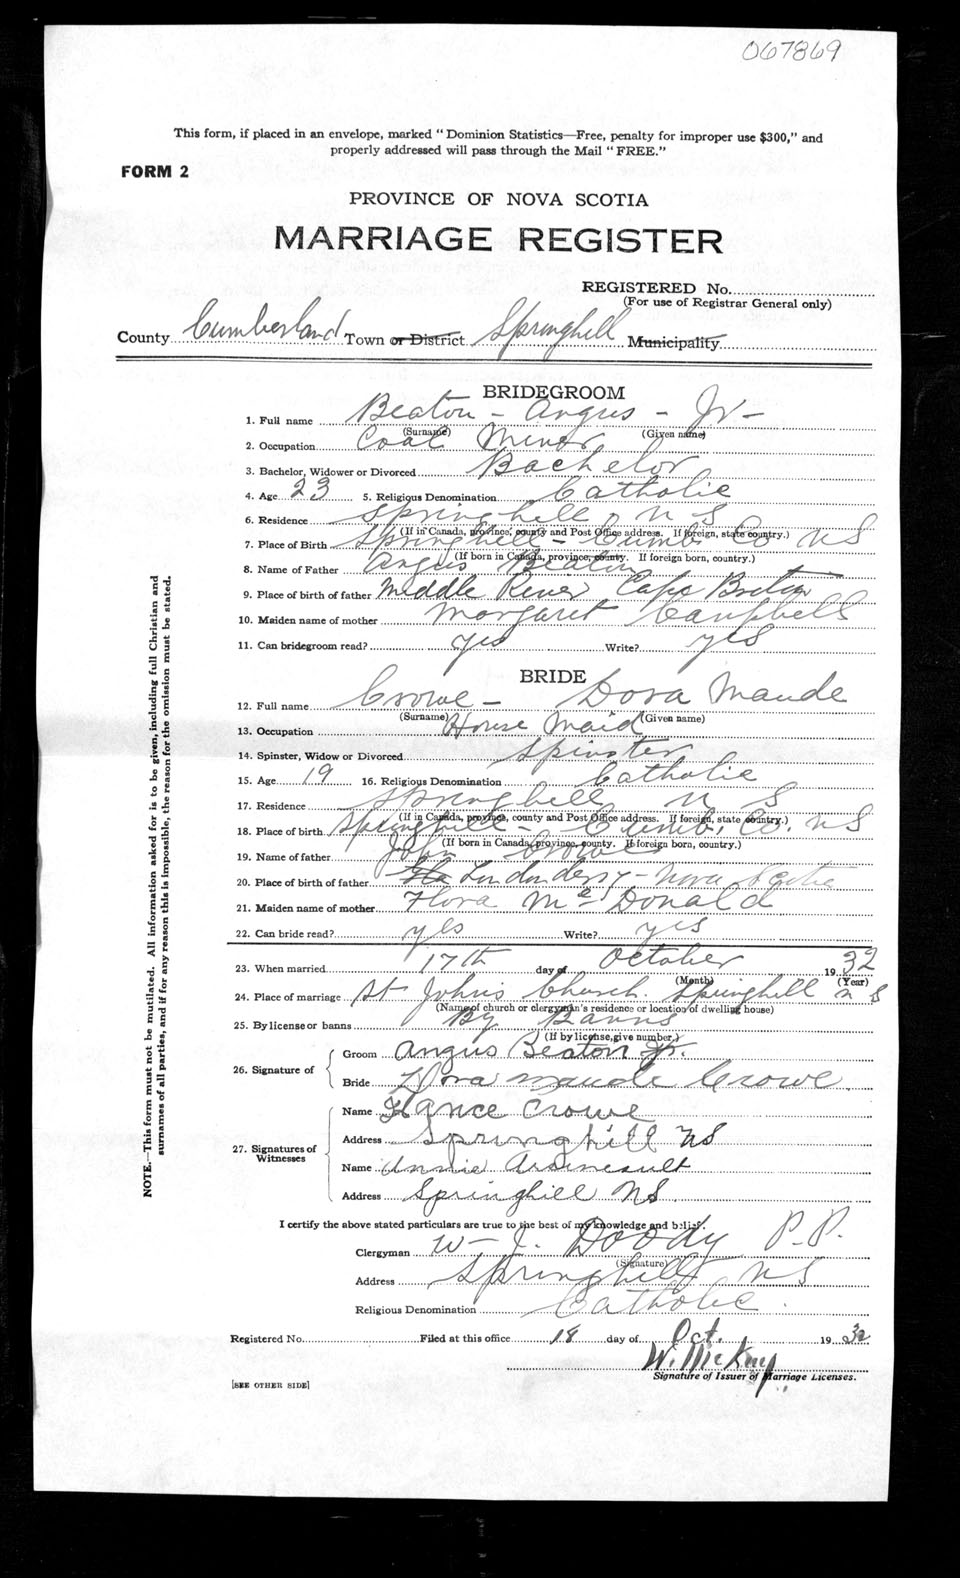 067869
This form, if placed in an envelope, marked "Dominion Statistics—Free, penalty for improper use $300," and
properly addressed will pass through the Mail "FREE."
FORM 2
PROVINCE OF NOVA SCOTIA
MARRIAGE REGISTER
REGISTERED No.
(For use of Registrar General only)
County Cumberland Town or District Springhill Municipality
BRIDEGROOM
1. Full name Beaton - Angus - Jr -
(Surname) (Given name)
2. Occupation Coal Miner
3. Bachelor, Widower or Divorced Bachelor
4. Age 23 5. Religious Denomination Catholic
6. Residence Springhill, N S
(If in Canada, province, county and Post Office address. If foreign, state country.)
7. Place of Birth Springhill - Cumb. Co N S
(If born in Canada, province, county. If foreign born, country.)
8. Name of Father Angus Beaton
9. Place of birth of father Middle River Cape Breton
10. Maiden name of mother Margaret Campbell
11. Can bridegroom read? yes Write? yes
BRIDE
12. Full name Crowe - Dora Maude
(Surname) (Given name)
13. Occupation House Maid
14. Spinster, Widow or Divorced Spinster
15. Age 19 16. Religious Denomination Catholic
17. Residence Springhill N S
(If in Canada, province, county and Post Office address. If foreign, state country.)
18. Place of birth Springhill - Cumb. Co. N S
(If born in Canada, province, county. If foreign born, country.)
19. Name of father John Crowe
20. Place of birth of father Londonderry - Nova Scotia
21. Maiden name of mother Flora Mc Donald
22. Can bride read? yes Write? yes
23. When married 17th day of October 1932
(Month) (Year)
24. Place of marriage St John's Church. Springhill N S
(Name of church or clergyman's residence or location of dwelling house)
25. By license or banns By Banns
(If by license, give number.)
26. Signature of
Groom Angus Beaton Jr.
Bride Dora Maude Crowe.
27. Signatures of Witnesses
Name Crowe
Address Springhill NS
Name Annie Arseneault
Address Springhill NS.
I certify the above stated particulars are true to the best of my knowledge and belief.
Clergyman W - J. Doody P. P.
(Signature)
Address Springhill N S
Religious Denomination Catholic.
Registered No. Filed at this office 18 day of Oct. 1932
Signature of Issuer of Marriage Licenses.
[SEE OTHER SIDE]
NOTE.—This form must not be mutilated. All information asked for is to be given, including full Christian and
surnames of all parties, and if for any reason this is impossible, the reason for the omission must be stated.